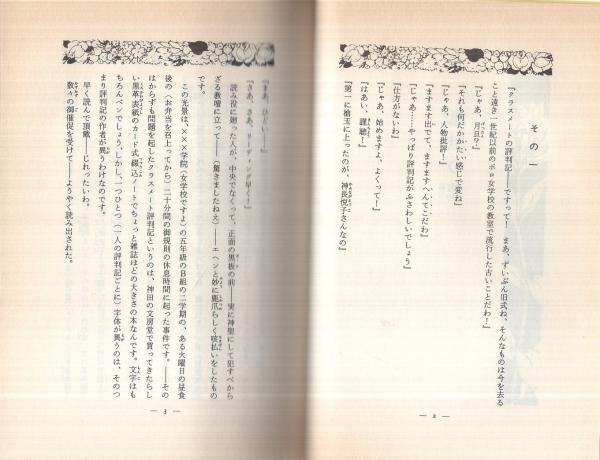 その一
『クラスメートの評判記――ですって！　まあ、ずいぶん旧式ね、そんなものは今を去る
こと遠き一世紀以前のボロ女学校の教室で流行した古いことだわ！』
『じゃあ、月旦？』
『それも何だかかたい感じで変ね』
『じゃあ、人物批評！』
『ますます出でて、ますますへんてこだわ』
『じゃあ……やっぱり評判記がふさわしいでしょう』
『仕方がないわ』
『じゃあ、始めますよ、よくって！』
『はあい、謹聴！』
『第一に槍玉に上ったのが、神長悦子さんなの』
― 2 ―
『まあ、ひどい――』
『さあ、さあ、リーディング早く！』
読み役に廻った人が、中央でなくって、正面の黒板の前――実に神聖にして犯すべから
ざる教壇に立って――（驚きましたねえ）――エヘンと妙に鹿爪らしく咳払いをしたもの
です。
この光景は、×××学院（女学校ですよ）の五年級のＢ組の二学期の、ある火曜日の昼食
後の（お弁当を召上ってから）二十分間の御規則の休息時間に起った事件です。――その
はからずも問題を起したクラスメート評判記というのは、神田の文房堂で買ってきたらし
い黒革表紙のカード式綴込ノートでちょっと雑誌ほどの大きさの本なんです。文字はも
ちろんペンでしょう、しかし、一つひとつ（一人の評判記ごとに）字体が異うのは、そのつ
まり評判記の作者が異うわけなのです。
早く読んで頂戴――じれったいわ。
数々の御催促を受けて――ようやく読み出された。
― 3 ―